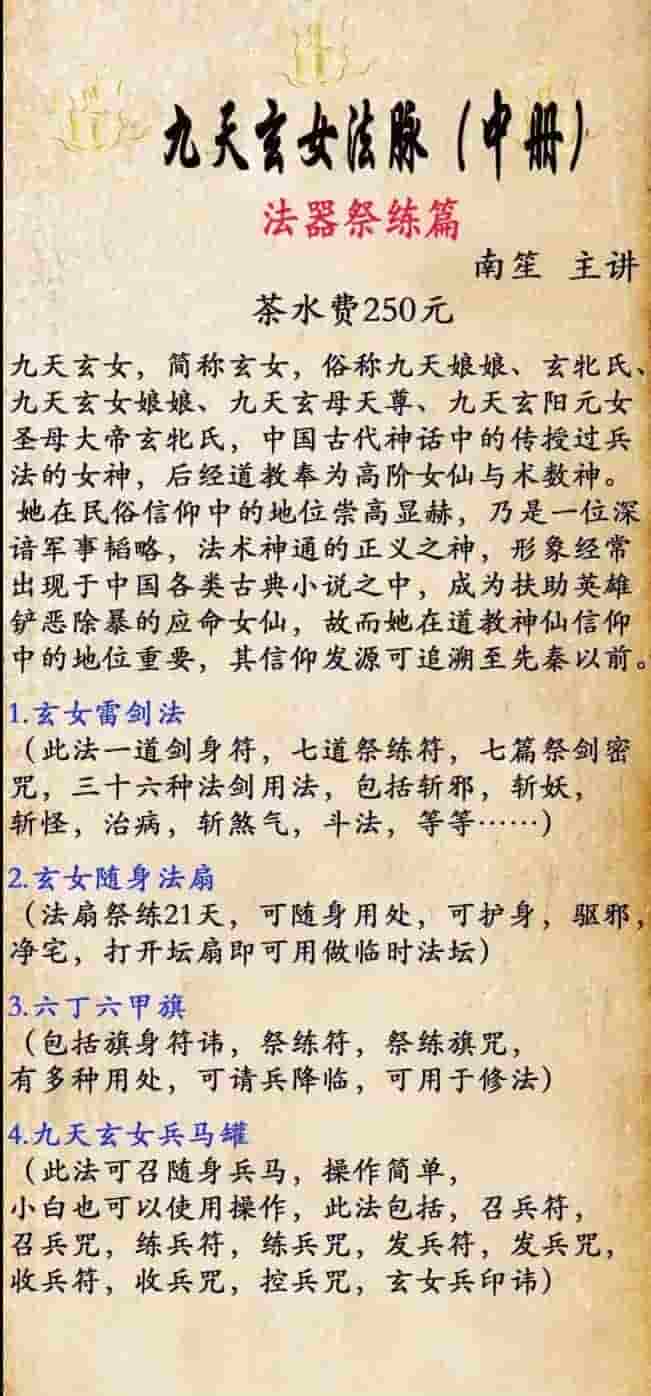 九天玄女法脉（中册）
法器祭练篇
南笙 主讲
茶水费250元
九天玄女，简称玄女，俗称九天娘娘、玄牝氏、
九天玄女娘娘、九天玄母天尊、九天玄阳元女
圣母大帝玄牝氏，中国古代神话中的传授过兵
法的女神，后经道教奉为高阶女仙与术数神。
她在民俗信仰中的地位崇高显赫，乃是一位深
谙军事韬略，法术神通的正义之神，形象经常
出现于中国各类古典小说之中，成为扶助英雄
铲恶除暴的应命女仙，故而她在道教神仙信仰
中的地位重要，其信仰发源可追溯至先秦以前。
1.玄女雷剑法
（此法一道剑身符，七道祭练符，七篇祭剑密
咒，三十六种法剑用法，包括斩邪，斩妖，
斩怪，治病，斩煞气，斗法，等等……）
2.玄女随身法扇
（法扇祭练21天，可随身用处，可护身，驱邪，
净宅，打开坛扇即可用做临时法坛）
3.六丁六甲旗
（包括旗身符讳，祭练符，祭练旗咒，
有多种用处，可请兵降临，可用于修法）
4.九天玄女兵马罐
（此法可召随身兵马，操作简单，
小白也可以使用操作，此法包括，召兵符，
召兵咒，练兵符，练兵咒，发兵符，发兵咒，
收兵符，收兵咒，控兵咒，玄女兵印讳）